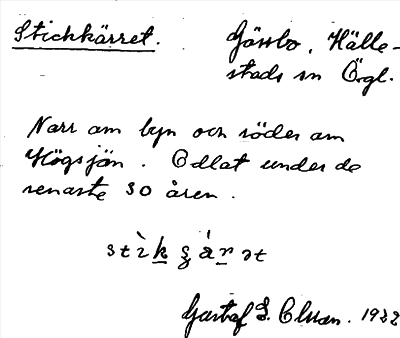 Stickkärret. Gässbo, Hälle-
stads sn Ögl.
Norr om byn och söder om
Högsjön. Odlat under de
senaste 30 åren.
Gustaf E. 1922